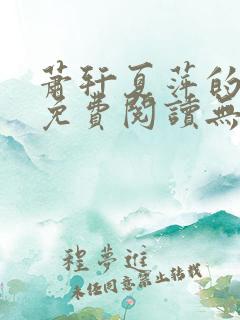 萧轩夏萍的
免費閱讀無
程夢進
未经同意禁止转载